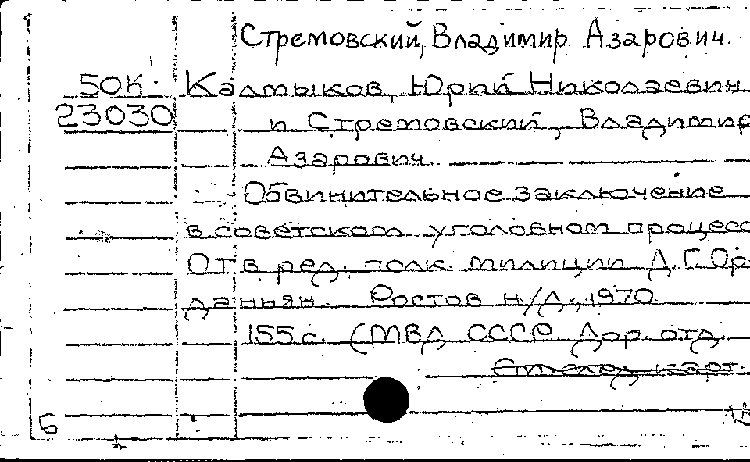 Стремовский, Владимир Азарович.
50К Калмыков, Юрий Николаевич
23030 и Стремовский, Владимир
Азарович.
Обвинительное заключение
в советском уголовном процесс
Отв. ред. полк. милиции Д.Г. Ор-
даньян. Ростов н/Д., 1970
155 с. (МВД СССР. Дор. отд.
карт.
Б